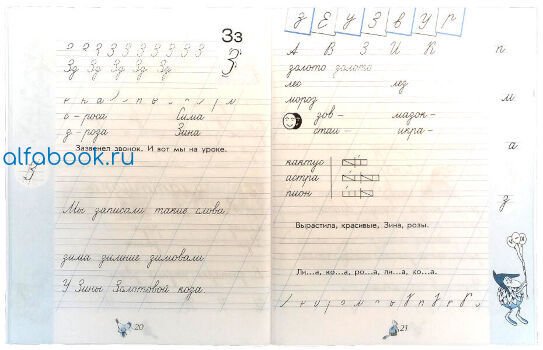 Зз
З З З З З З З З З З
Зд Зд Зд Зд Зд
З
с - роса Сима
д - роза Зина
Зазвенел звонок. И вот мы на уроке.
alfabook.ru
Мы записали такие слова.
зима зимние зимовали
У Зины Золотовой коза.
20
З Е У З в У р
А В З И К п
золото золото
лес лёд
мороз м
зов - мазок -
стаи - икра -
а
кактус
астра
пион
з
Вырастила, красивые, Зина, розы.
Ли...а, ко...а, ро...а, ли...а, ко...а.
21